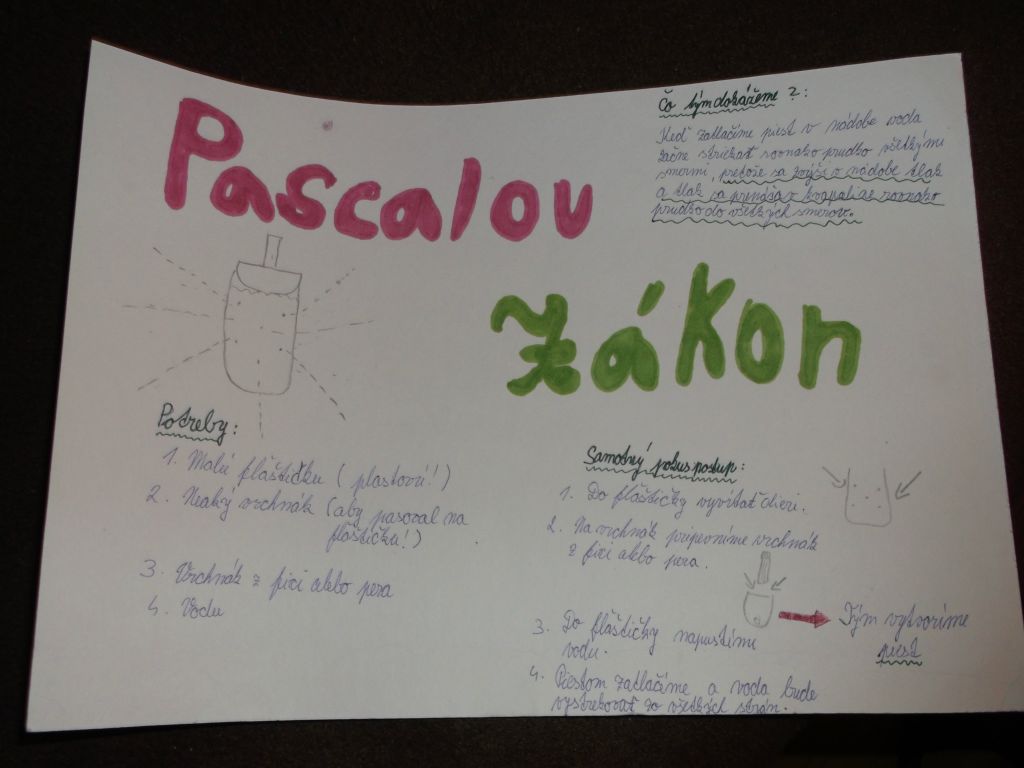 Pascalov
zákon
Čo tým dokážeme ?:
Keď zatlačíme piest v nádobe voda
začne striekať rovnako prudko všetkými
smermi, pretože sa zvýši v nádobe tlak
a tlak sa prenáša v kvapaline rovnako
prudko do všetkých smerov.
Potreby:
1. Malú fľaštičku ( plastovú!!)
2. Neaký vrchnák (aby pasoval na
fľaštičku!)
3. Vrchnák z fixi alebo pera
4. Vodu
Samotný pokus postup:
1. Do fľaštičky vyvŕtať dieri.
2. Na vrchnák pripevníme vrchnák
z fixi alebo pera.
Tým vytvoríme
piest
3. Do fľaštičky napustíme
vodu.
4. Piestom zatlačíme a voda bude
vystrekovať zo všetkých strán.